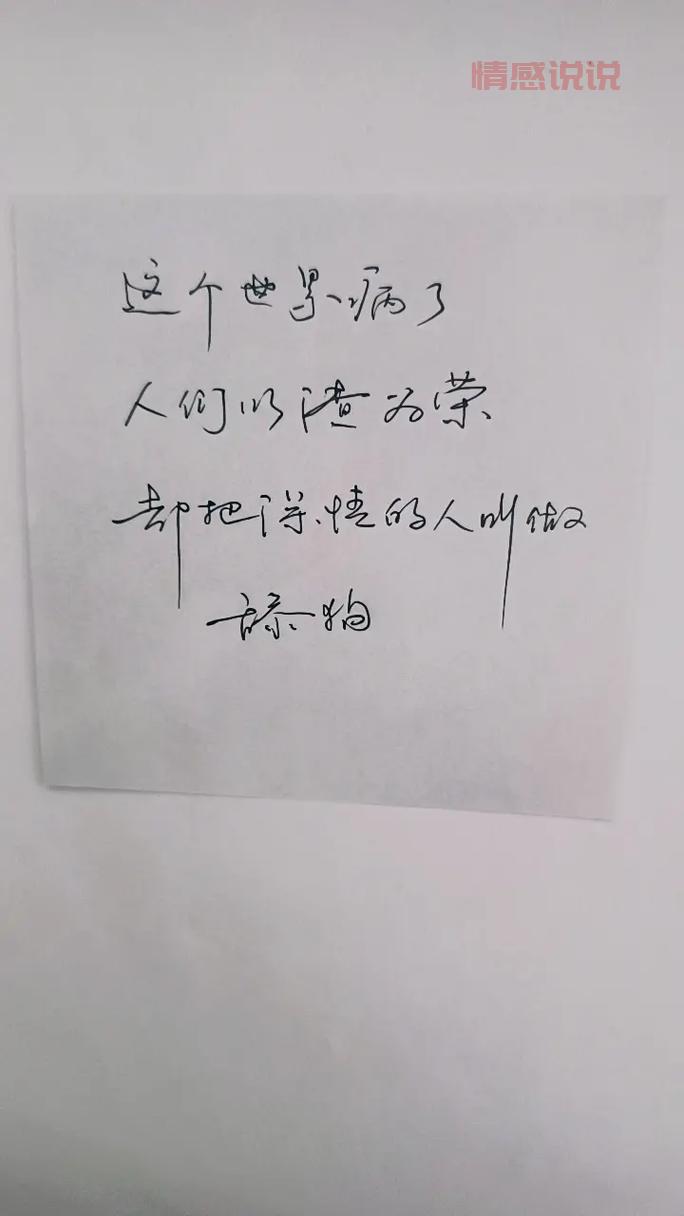 情感说说
这个世界病了
人们以渣为荣
却把深情的人叫做
舔狗